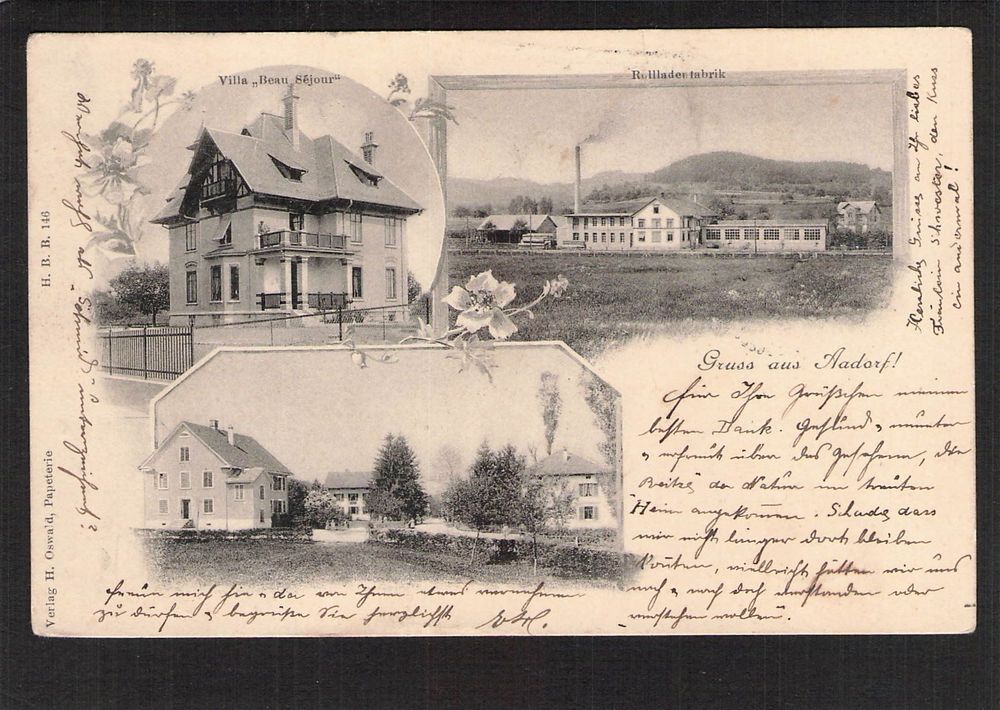 Villa „Beau Séjour“
Rollladenfabrik
H. B. B. 146
Verlag H. Oswald, Papeterie
Gruss aus Aadorf!
für Ihre Grüßchen meinen
besten Dank. Gesund & munter
& erfreut über das Gesehene, die
Reize der Natur im trauten
Heim angekommen. Schade dass
wir nicht länger dort bleiben
konten, vielleicht hätten wir uns
nach & nach doch verstanden oder
verstehen wollen.
Freue mich hie & da von Ihnen etwas vernehmen
zu dürfen & begrüße Sie herzlichst
Herzliche Grüsse an Ihr liebes
Fräulein Schwester, den Kuss
ein andermal!